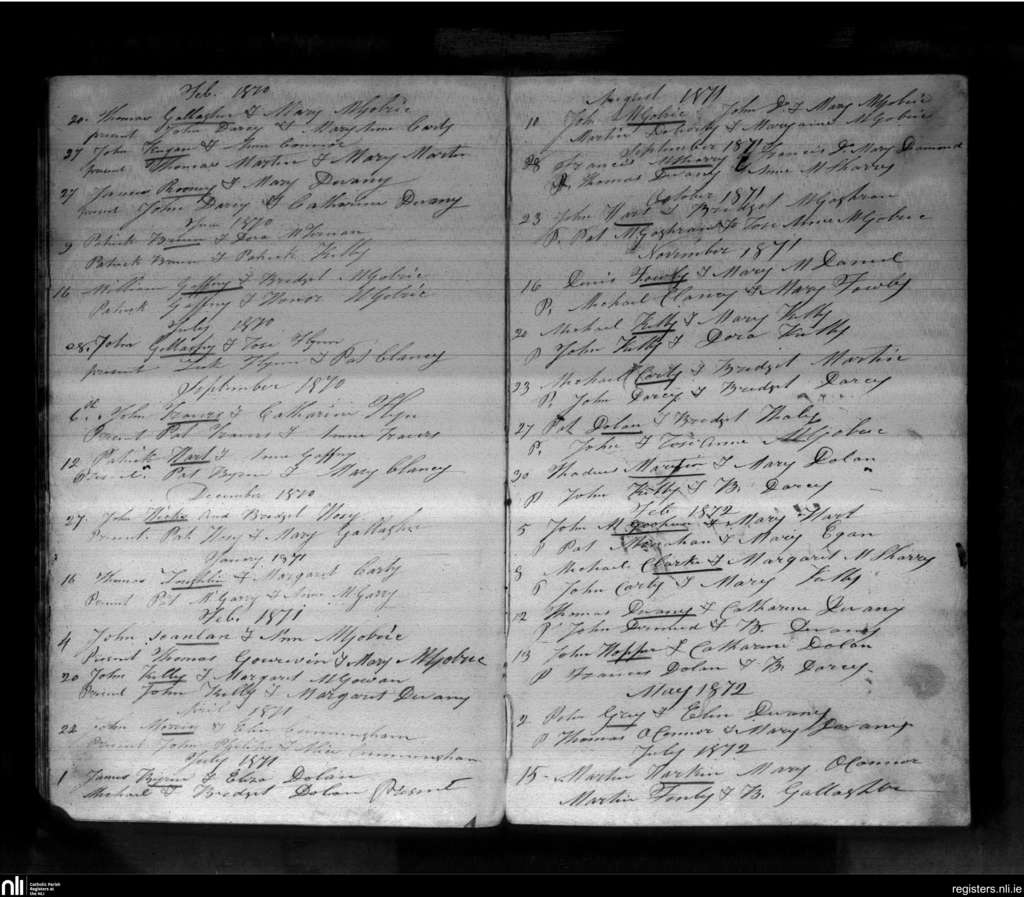 Feb. 1870
20. Thomas Gallagher & Mary McGobric
present John Darcy & Mary Anne Carty
27 John & Anne
present Thomas Martin & Mary Martin
27 James Rooney & Mary Devany
present John Darcy & Catharine Devany
1870
9 Patrick & Dora
Patrick & Patrick Kilby
16 William Gaffney & Bridget McGobric
Patrick Gaffney & Honor McGobric
July 1870
28. John Gallagher & Flynn
present Flynn & Pat Clancy
September 1870
6th. John Travers & Catharine
Present Pat Travers & Anne Travers
12 Patrick Hart & Anne Gaffny
Present Pat Byrne & Mary Clancy
December 1870
27. John Hicks and Bredget
Present. Pat & Mary Gallagher
1871
16 Thomas Loughlin & Margaret Carty
Present Pat McGarry & Anne McGarry
Feb. 1871
4 John Scanlan & Ann McGobric
Present Thomas & Mary McGobric
20 John Kelly & Margaret McGowan
Present John Kelly & Margaret Devany
April 1871
22 John & Cunningham
Present John & Cunningham
July 1871
1 James Byrne & Eliza Dolan
Michael & Bredget Dolan Present
August 1871
10 John McGobric John Do & Mary McGobric
Martin Doherty & Maryanne McGobric
September 1871
28 Francis McSharry Francis Do Mary Damond
P. Thomas Devany & Anne McSharry
October 1871
23 John Hart & Bredget McGoghran
P. Pat McGoghran & Rose Anne McGobric
November 1871
16 Denis Fowby & Mary McDaniel
P. Michael Clancy & Mary Fowby
20 Michael Kilby & Mary Kilby
P John Kilby & Dora Kilby
23 Michael Carty & Bredget Martin
P. John Darcy & Bredget Darcy
27 Pat Dolan & Bredget Haly
P. John & Rose Anne McGobric
30 Thadeus Martin & Mary Dolan
P John Kilby & B. Darcy
Feb. 1872
5 John & Mary Hart
P Pat & Mary Egan
8 Michael Clarke & Margaret McSharry
P John Carty & Mary Kilby
12 Thomas Devany & Catharine Devany
P John & B. Devany
13 John Hopper & Catharine Dolan
P Francis Dolan & B. Darcy
May 1872
2 Peter Gray & Ellen Devany
P Thomas O'Connor & Mary Devany
July 1872
15 Martin Harkin Mary O'Connor
Martin & B. Gallagher
nli
Catholic Parish
Registers at
the NLI
registers.nli.ie